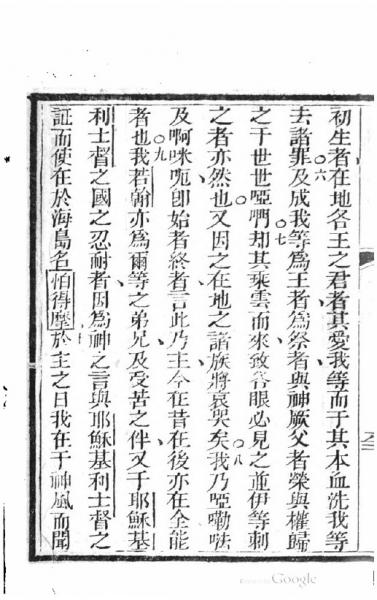 初生者在地各王之君者其愛我等而于其本血洗我等
去諸罪○六及成我等為王者為祭者與神厥父者榮與權歸
之于世世啞𠵽○七却其乘雲而來致各眼必見之並伊等刺
之者亦然也又因之在地之諸族將哀哭矣○八我乃啞嘞𠵽
及啊咪呃卽始者終者言此乃主今在昔在後亦在全能
者也○九我若翰亦為爾等之弟兄及受苦之伴又于耶穌基
利士督之國之忍耐者因為神之言與耶穌基利士督之
証而使在於海島名怕得摩於主之日我在于神風而聞
Google